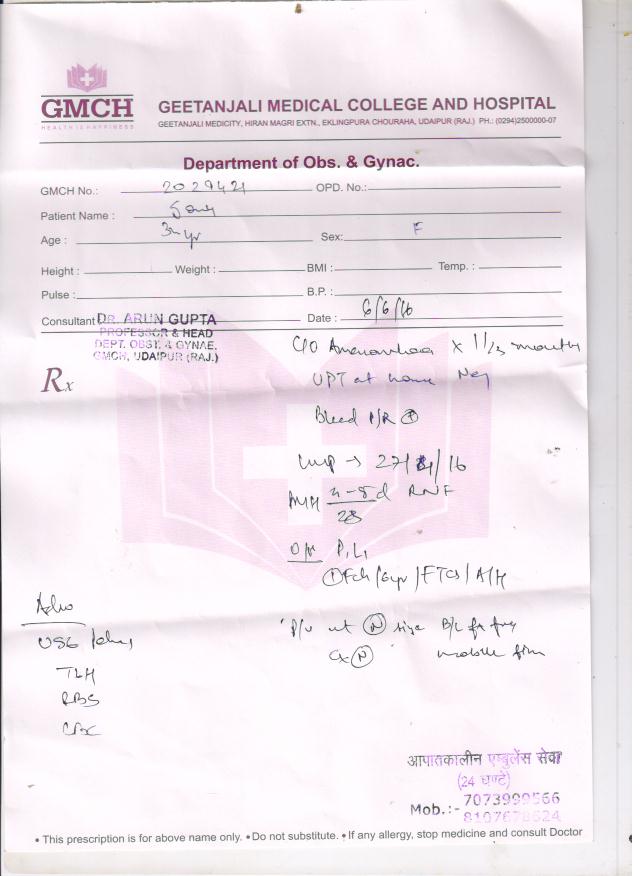 GMCH
HEALTH IS HAPPINESS
GEETANJALI MEDICAL COLLEGE AND HOSPITAL
GEETANJALI MEDICITY, HIRAN MAGRI EXTN., EKLINGPURA CHOURAHA, UDAIPUR (RAJ.) PH.: (0294)2500000-07
Department of Obs. & Gynac.
GMCH No.: 2029421 OPD. No.:
Patient Name :
Age : Sex: F
Height : Weight : BMI : Temp. :
Pulse : B.P. :
Consultant DR. ARUN GUPTA Date : 6/6/16
PROFESSOR & HEAD
DEPT. OBST. & GYNAE.
GMCH, UDAIPUR (RAJ.)
C/O Amenorrhoea x months
Rx
UPT at home Neg
Bleed P/R
LMP → 27/ /16
M/H 28 RNF
O/H P1L1
①Fch/6yr/FTCS/A/H
Adv
USG
P/V ut Ⓝ size B/L fx free
Cx Ⓝ mobile firm
RBS
CBC
आपातकालीन एम्बुलेंस सेवा
(24 घण्टे)
Mob.:- 7073999566
8107678624
• This prescription is for above name only. • Do not substitute. • If any allergy, stop medicine and consult Doctor